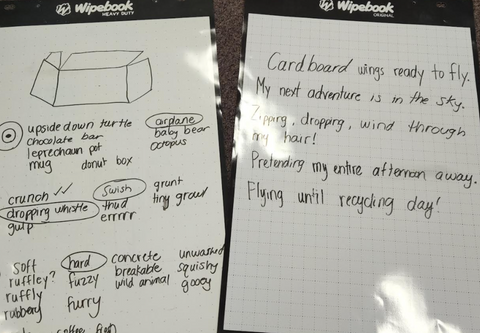 Wipebook
HEAVY DUTY
upside down turtle
chocolate bar
leprechaun pot
mug
donut box
airplane
baby bear
octopus
crunch
dropping whistle
gulp
swish
thud
errrrr
grunt
tiny growl
soft
ruffley?
ruffly
rubbery
hard
fuzzy
furry
concrete
breakable
wild animal
unwashed
squishy
gooey
coffee
Wipebook
ORIGINAL
Cardboard wings ready to fly.
My next adventure is in the sky.
Zipping, dropping, wind through
my hair!
Pretending my entire afternoon away.
Flying until recycling day!